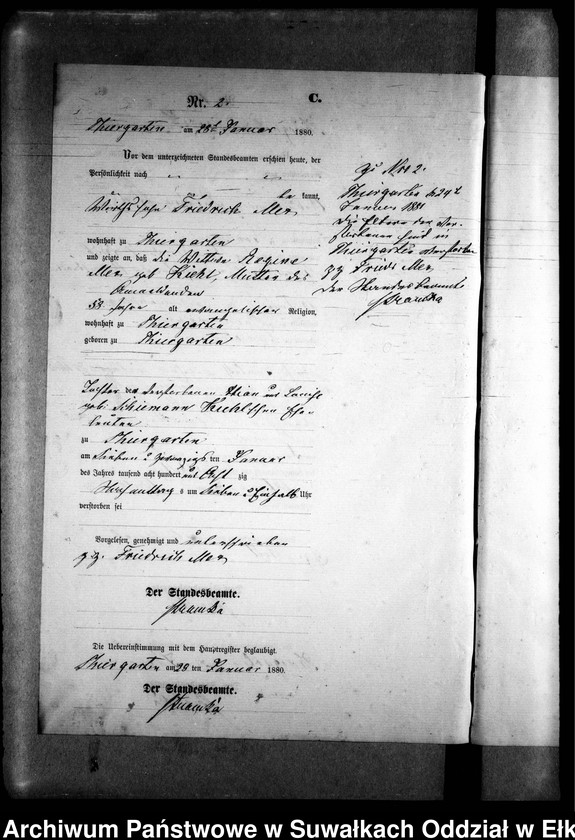 Nr. 2.
C.
Thiergarten am 28t Januar 1880.
Vor dem unterzeichneten Standesbeamten erschien heute, der
Persönlichkeit nach
be kannt,
Wirthssohn Friedrich Mex
wohnhaft zu Thiergarten
und zeigte an, daß die Wittwe Regine
Mex geb Kiehl, Mutter des
Anmeldenden
58 Jahre alt evangelischer Religion,
wohnhaft zu Thiergarten
geboren zu Thiergarten
Tochter der verstorbenen und Louise
geb. Schiemann Kiehlschen Ehe-
leuten
zu Thiergarten
am Sieben u zwanzigsten Januar
des Jahres tausend acht hundert und Acht zig
Nachmittag s um Sieben u Einhalb Uhr
verstorben sei
Vorgelesen, genehmigt und unterschrieben
gz. Friedrich Mex
Der Standesbeamte.
Die Uebereinstimmung mit dem Hauptregister beglaubigt.
Thiergarten am 28 ten Januar 1880.
Der Standesbeamte.
zu Nro 2.
Thiergarten d 29t
Januar
Die Eltern der Ver-
storbenen sind in
Thiergarten verstorben
gz Friedr Mex
Der Standesbeamte
Archiwum Państwowe w Suwałkach Oddział w Ełk